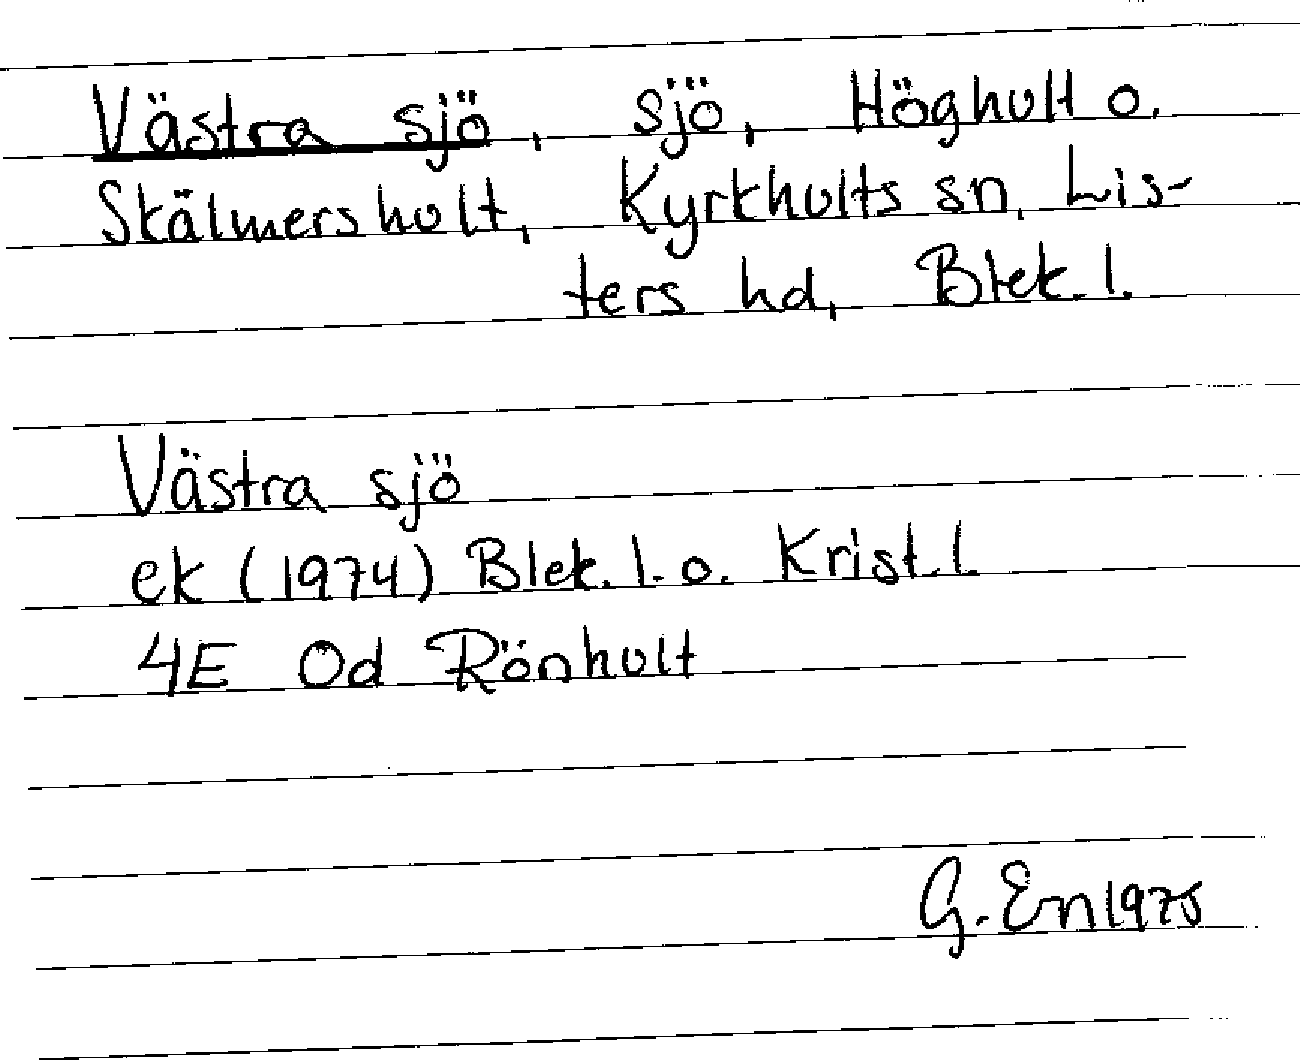 Västra sjö, sjö, Höghult o.
Skälmershult, Kyrkhults sn, Lis-
ters hd, Blek. l.
Västra sjö
ek (1974) Blek. l. o. Krist. l.
4E Od Rönhult
G. En 1975